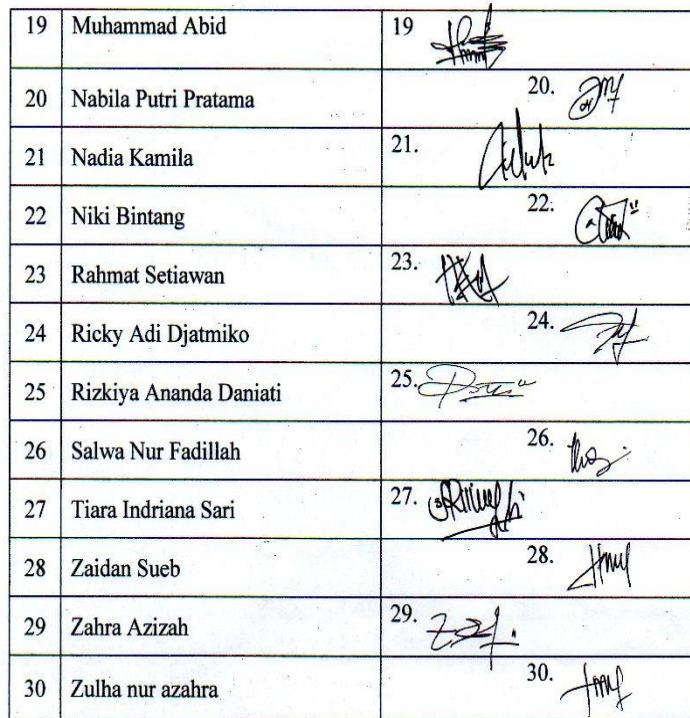 19 Muhammad Abid 19
20 Nabila Putri Pratama 20.
21 Nadia Kamila 21.
22 Niki Bintang 22.
23 Rahmat Setiawan 23.
24 Ricky Adi Djatmiko 24.
25 Rizkiya Ananda Daniati 25.
26 Salwa Nur Fadillah 26.
27 Tiara Indriana Sari 27.
28 Zaidan Sueb 28.
29 Zahra Azizah 29.
30 Zulha nur azahra 30.